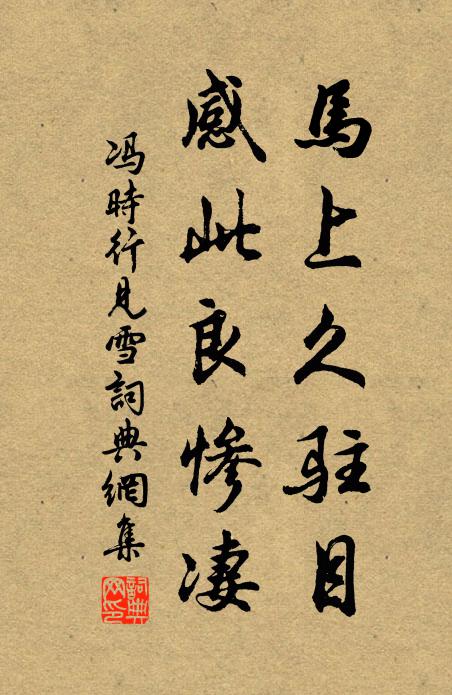 馬上久駐目
感此良慘凄
冯時行見雪詞典網集
詞典网印